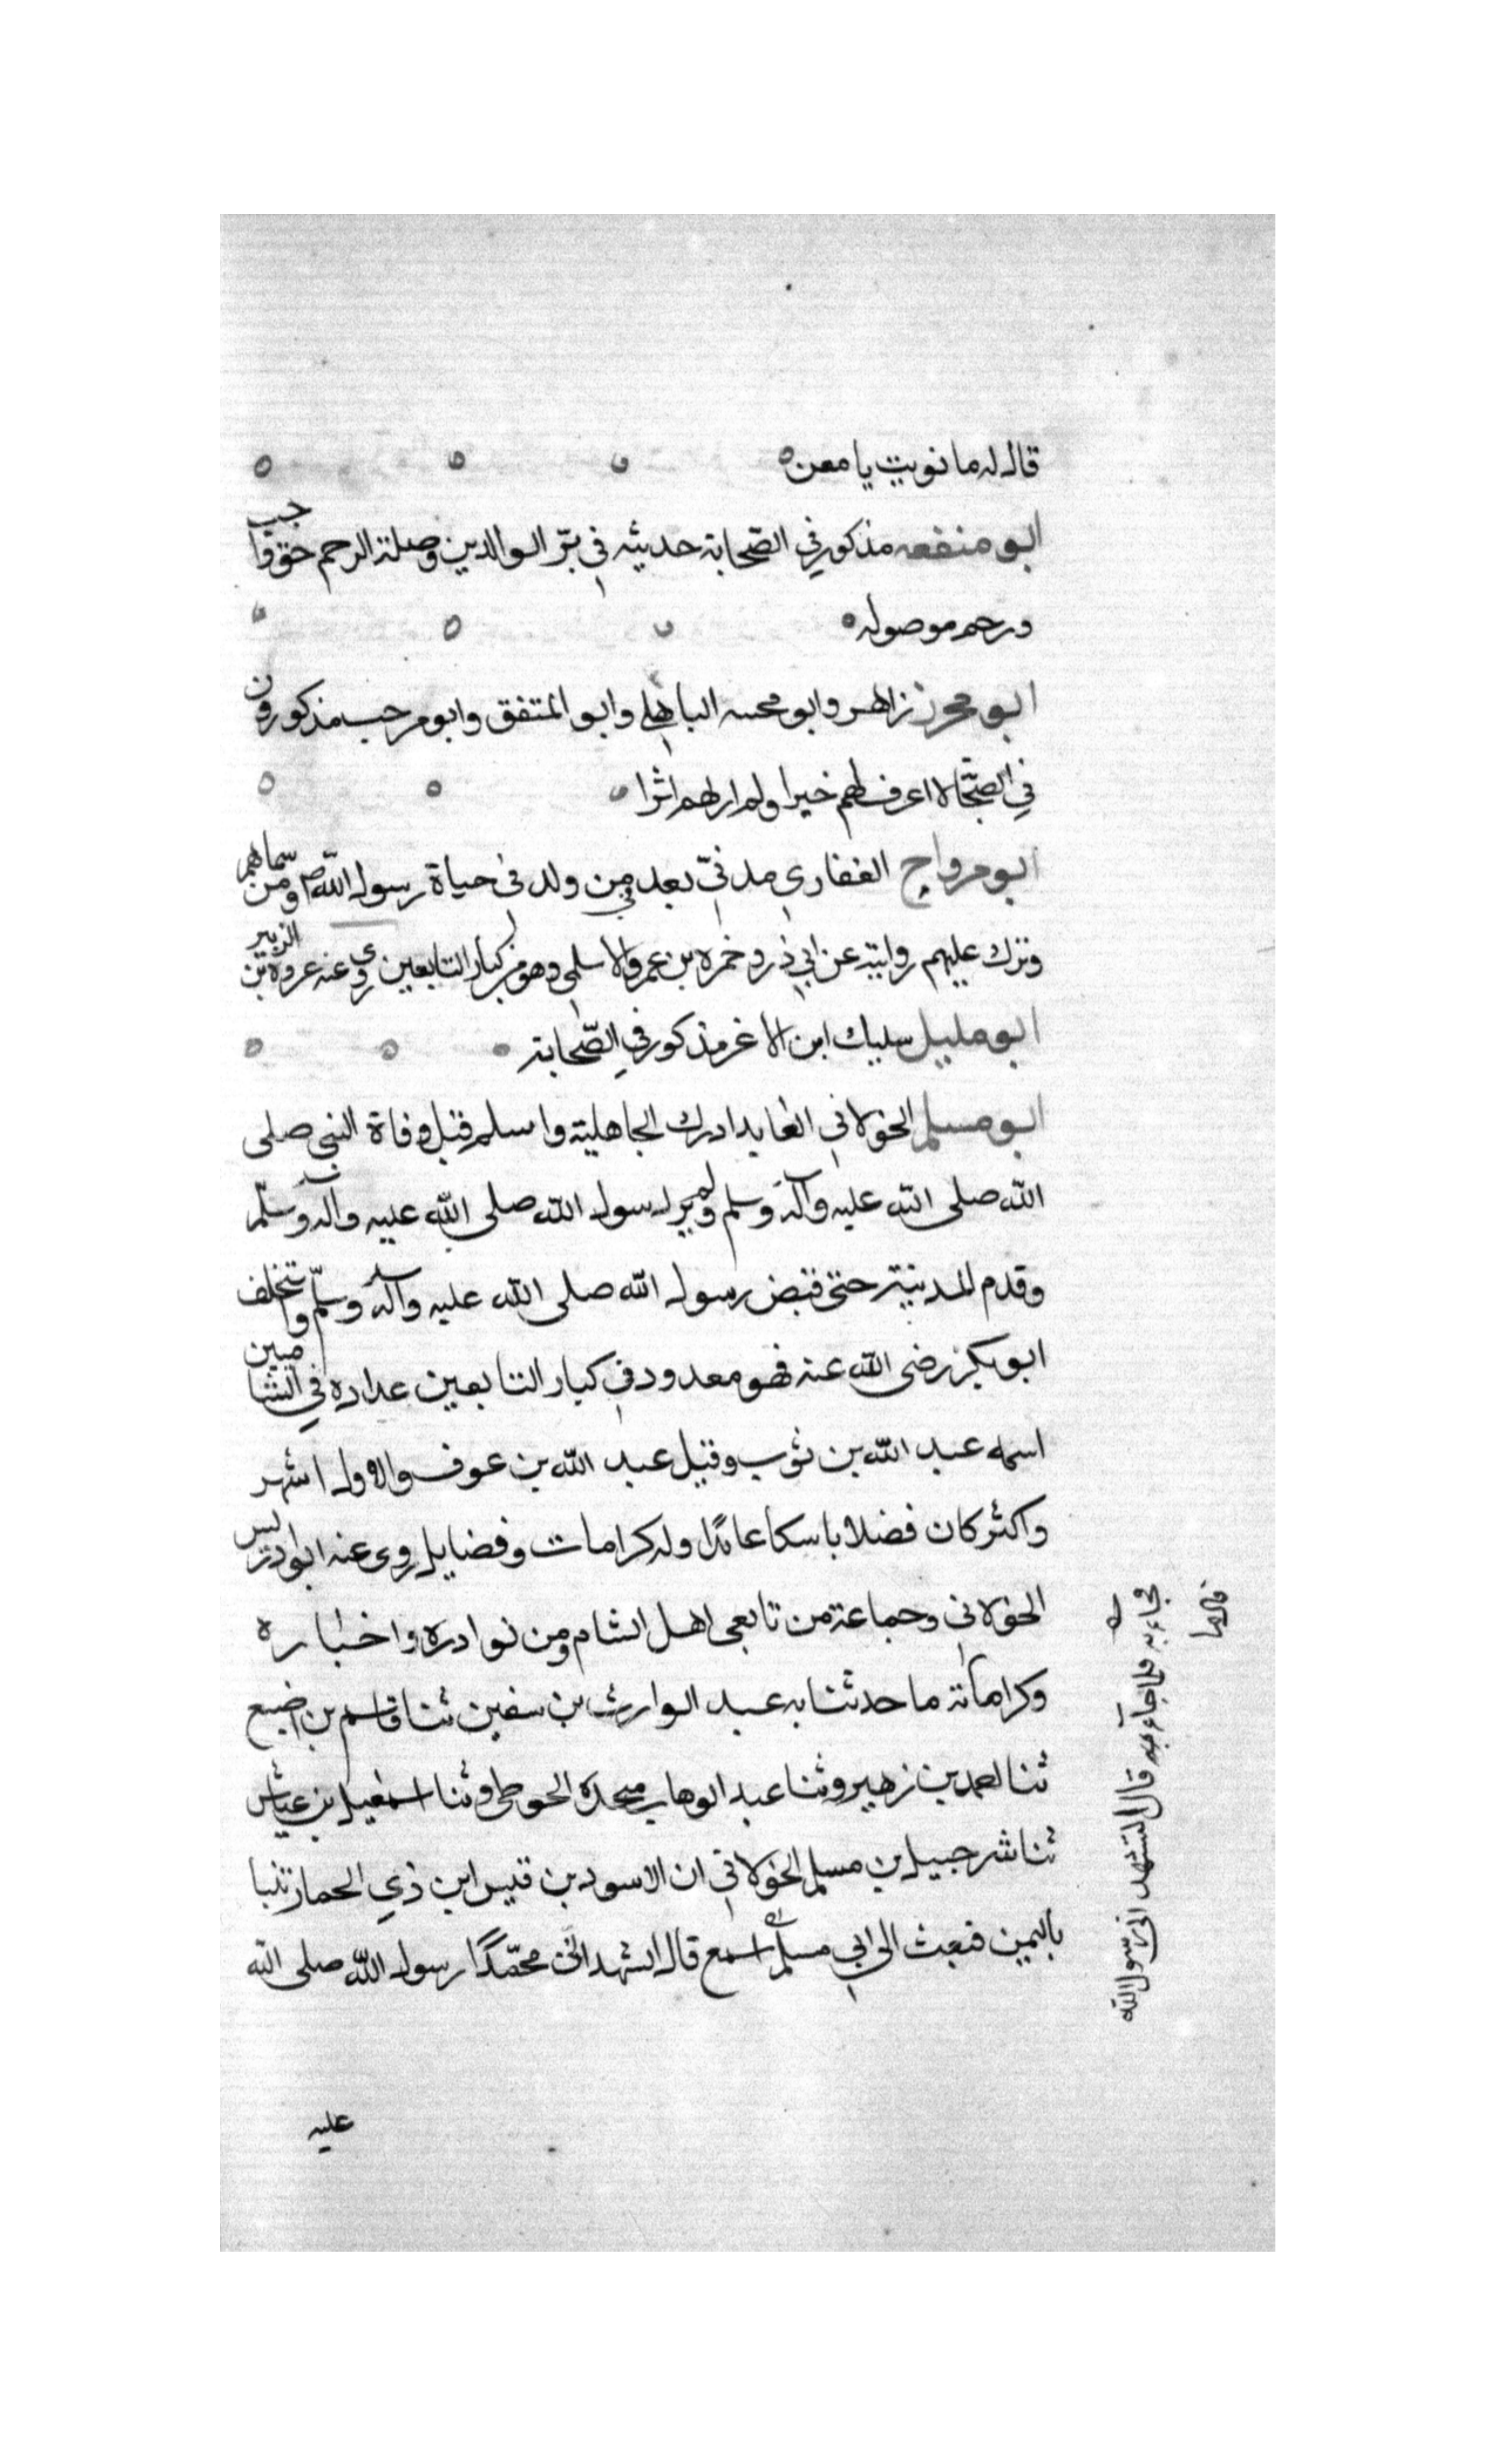 قال له ما نويت يا معن
ابو منفعه مذكور في الصّحابة حديثه في برّ الوالدين وصلة الرحم حق واجب
ورحم موصوله
ابو محرز زاهر وابو محسه الباهلي وابو المنتفق وابو مرحب مذكورون
في الصّحابة لا اعرف لهم خيرا ولم ار لهم اثرا
ابو مرواح الغفاري مدنيّ يعد في من ولد في حياة رسول اللهص ومن سماهم
وترك عليهم روايته عن ابي ذر وخمره بن عمرو الاسلمي وهو من كبار التابعين روى عنه عروة بن الزبير
ابو مليل سليك ابن الاغر مذكور في الصّحابة
ابو مسلم الخولاني العابد ادرك الجاهلية واسلم قبل وفاة النبي صلى
الله صلى الله عليه وآله وسلم ولم ير رسول الله صلى الله عليه وآله وسلّم
وقدم المدينة حتى قبض رسول الله صلى الله عليه وآله وسلّم واستخلف
ابو بكر رضى الله عنه فهو معدود في كبار التابعين عداده في الشاميين
اسمه عبد الله بن ثوب وقيل عبد الله بن عوف والاول اشهر
واكثر كان فضلا باسكا عابدًا وله كرامات وفضايل روى عنه ابو ادريس
الخولاني وجماعة من تابعى اهل الشام ومن نوادره واخباره
وكراماته ما حدثنا به عبد الوارث بن سفين ثنا قاسم بن اضبع
ثنا احمد بن زهير وثنا عبد الوهاب بن نجدة الحوطى وثنا اسمعيل بن عياش
ثنا شرحبيل بن مسلم الخولاني ان الاسود بن قيس ابن ذي الحمار تنبا
باليمن فبعث الى ابي مسلم قال اشهد ان محمّدًا رسول الله صلى الله
فجاء به فلما جاء به قال اتشهد اني رسول الله
قال ما
عليه